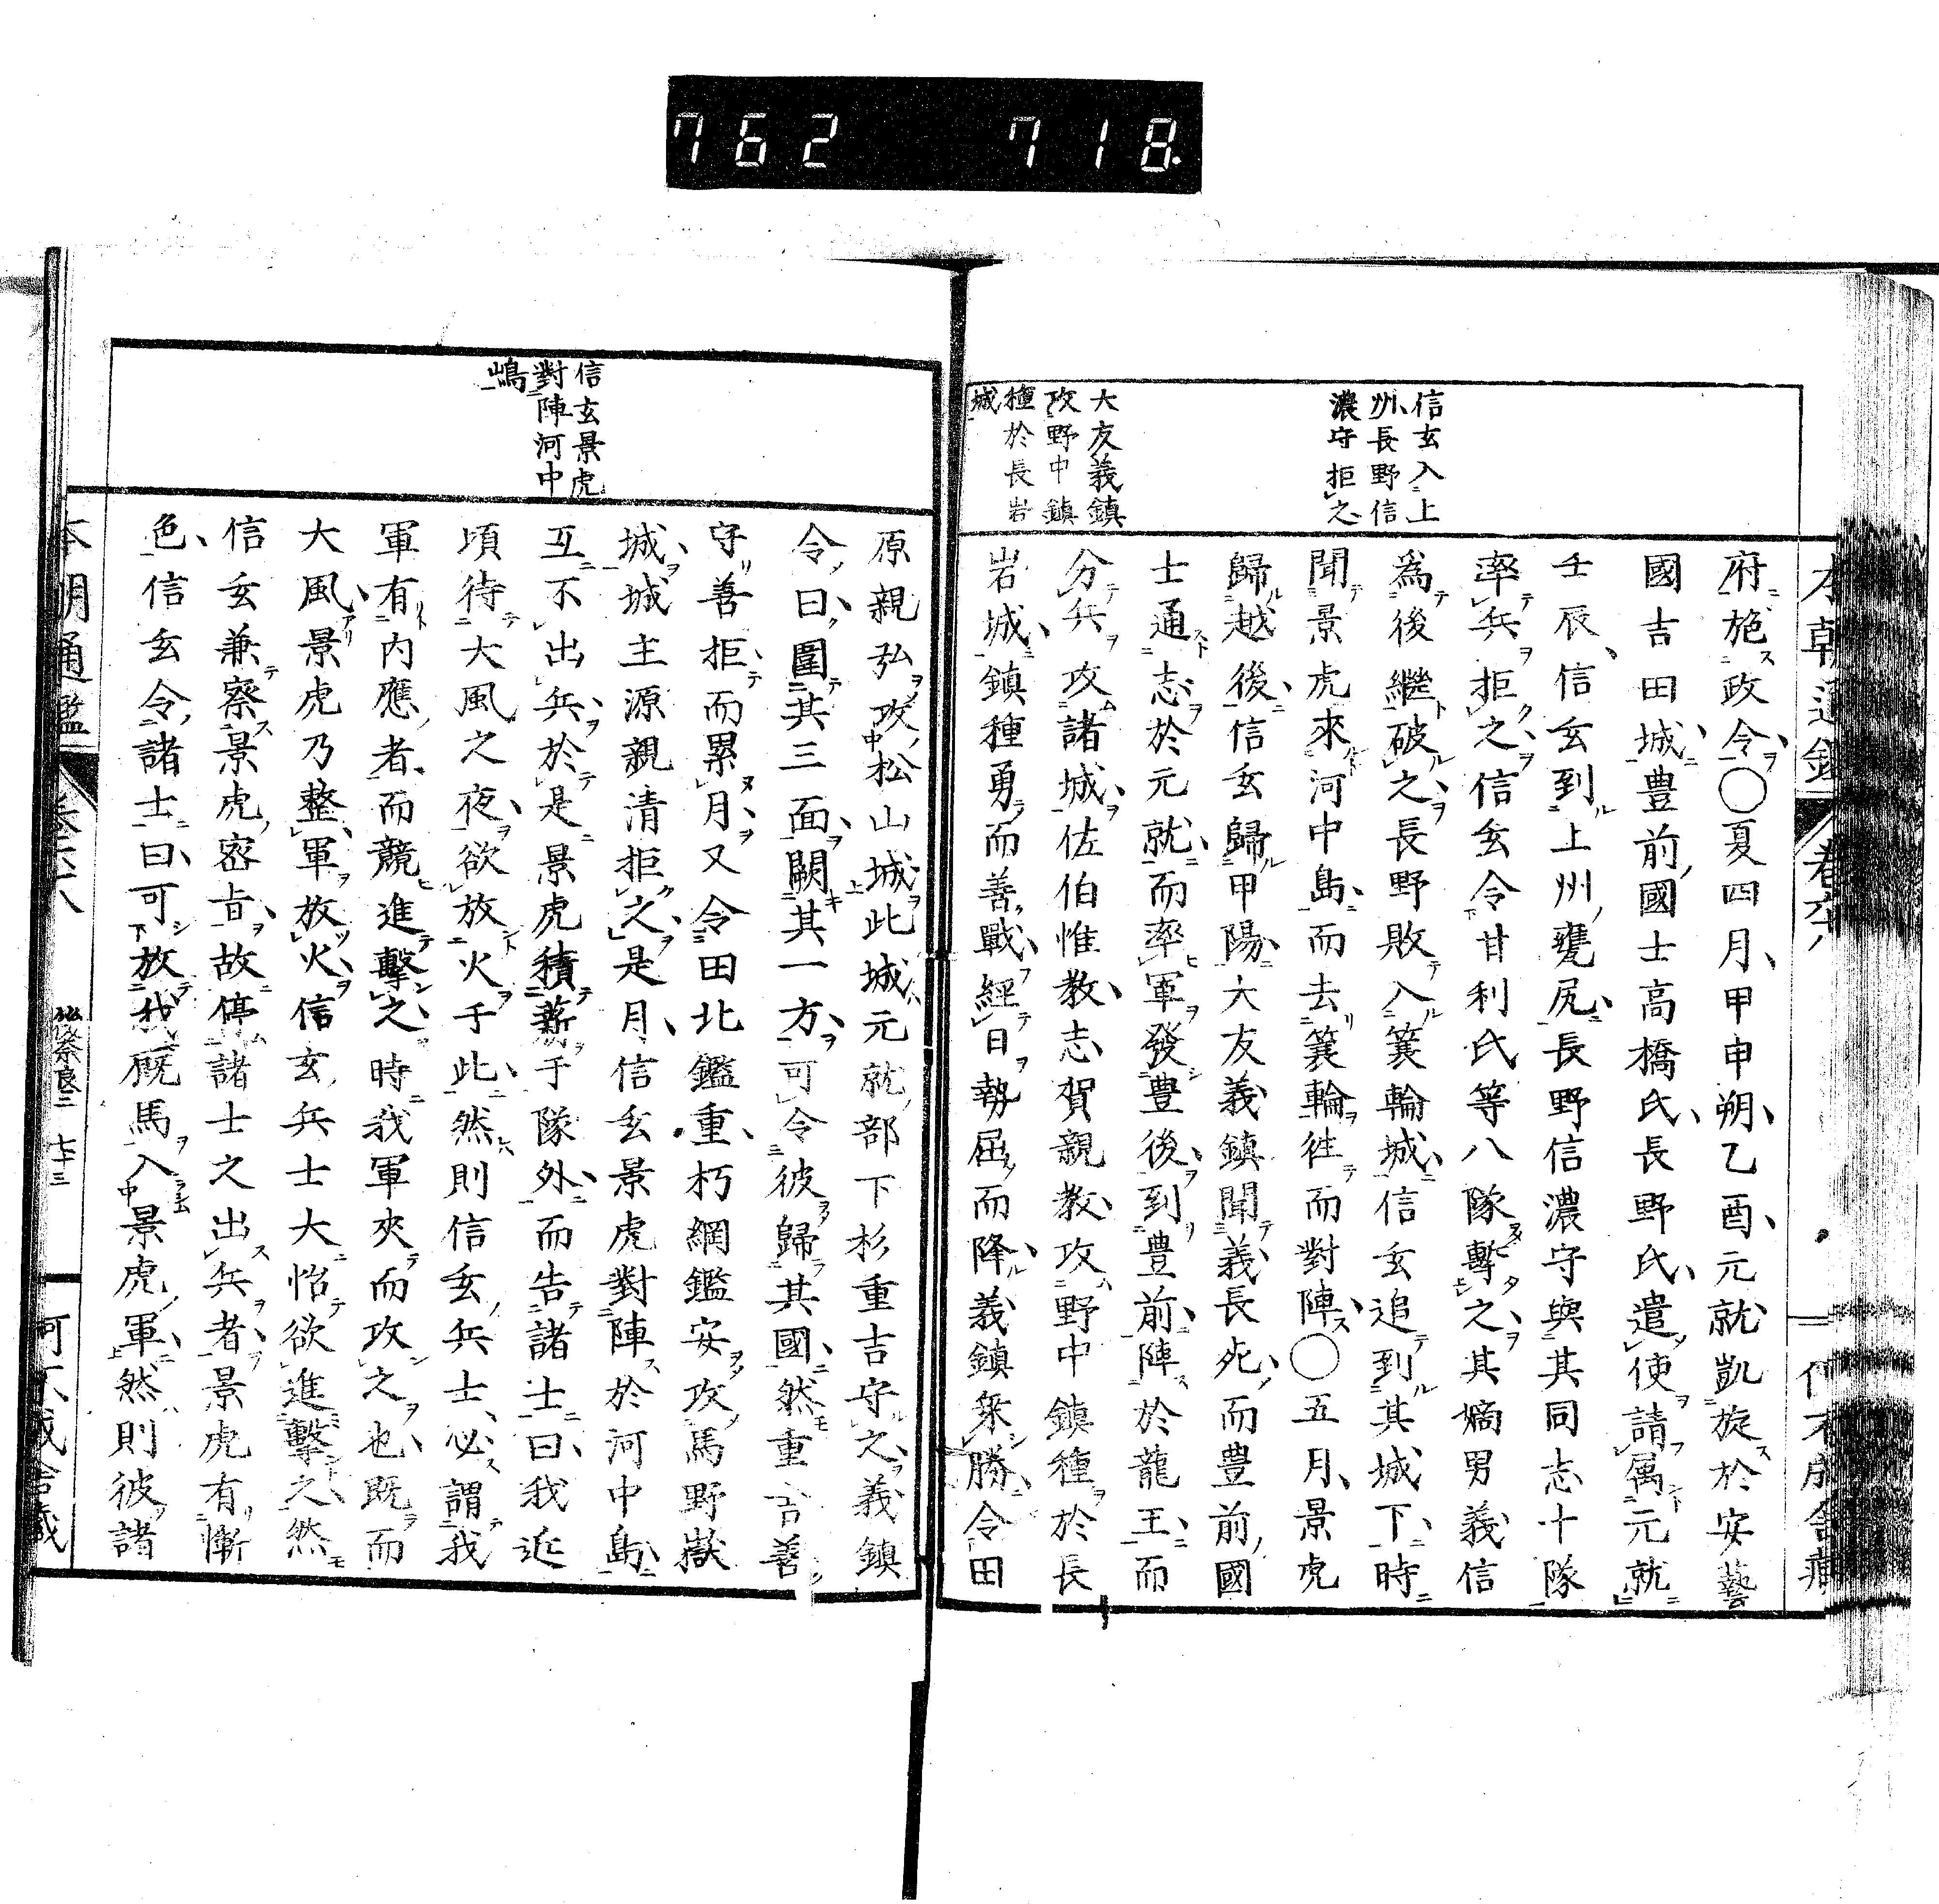 762 718.
信玄入上
州長野信
濃守拒之
大友義鎮
攻野中鎮
種於長岩
城
府施政令○夏四月甲申朔乙酉元就凱旋於安藝
國吉田城豊前國士高橋氏長野氏遣使請属元就
壬辰信玄到上州甕尻長野信濃守與其同志十隊
率兵拒之信玄令甘利氏等八隊擊之其嫡男義信
為後繼破之長野敗入箕輪城信玄追到其城下時
聞景虎來河中島而去箕輪往而對陣○五月景虎
歸越後信玄歸甲陽大友義鎮聞義長死而豊前國
士通志於元就而率軍發豊後到豊前陣於龍王而
分兵攻諸城佐伯惟教志賀親教攻野中鎮種於長
岩城鎮種勇而善戰經日勢屈而降義鎮乗勝令田
信玄景虎
對陣河中
嶋
原親弘攻松山城此城元就部下杉重吉守之義鎮
令曰圍其三面闕其一方可令彼歸其國然重吉善
守善拒而累月又令田北鑑重朽網鑑安攻馬野嶽
城城主源親清拒之是月信玄景虎對陣於河中島
互不出兵於是景虎積薪于隊外而告諸士曰我近
頃待大風之夜欲放火于此然則信玄兵士必謂我
軍有内應者而競進擊之時我軍夾而攻之也既而
大風景虎乃整軍放火信玄兵士大怊欲進擊之然
信玄兼察景虎密旨故停諸士之出兵者景虎有慚
色信玄令諸士曰可放我厩馬入景虎軍然則彼諸
本朝通鑑 卷六八 後奈良二 七十三